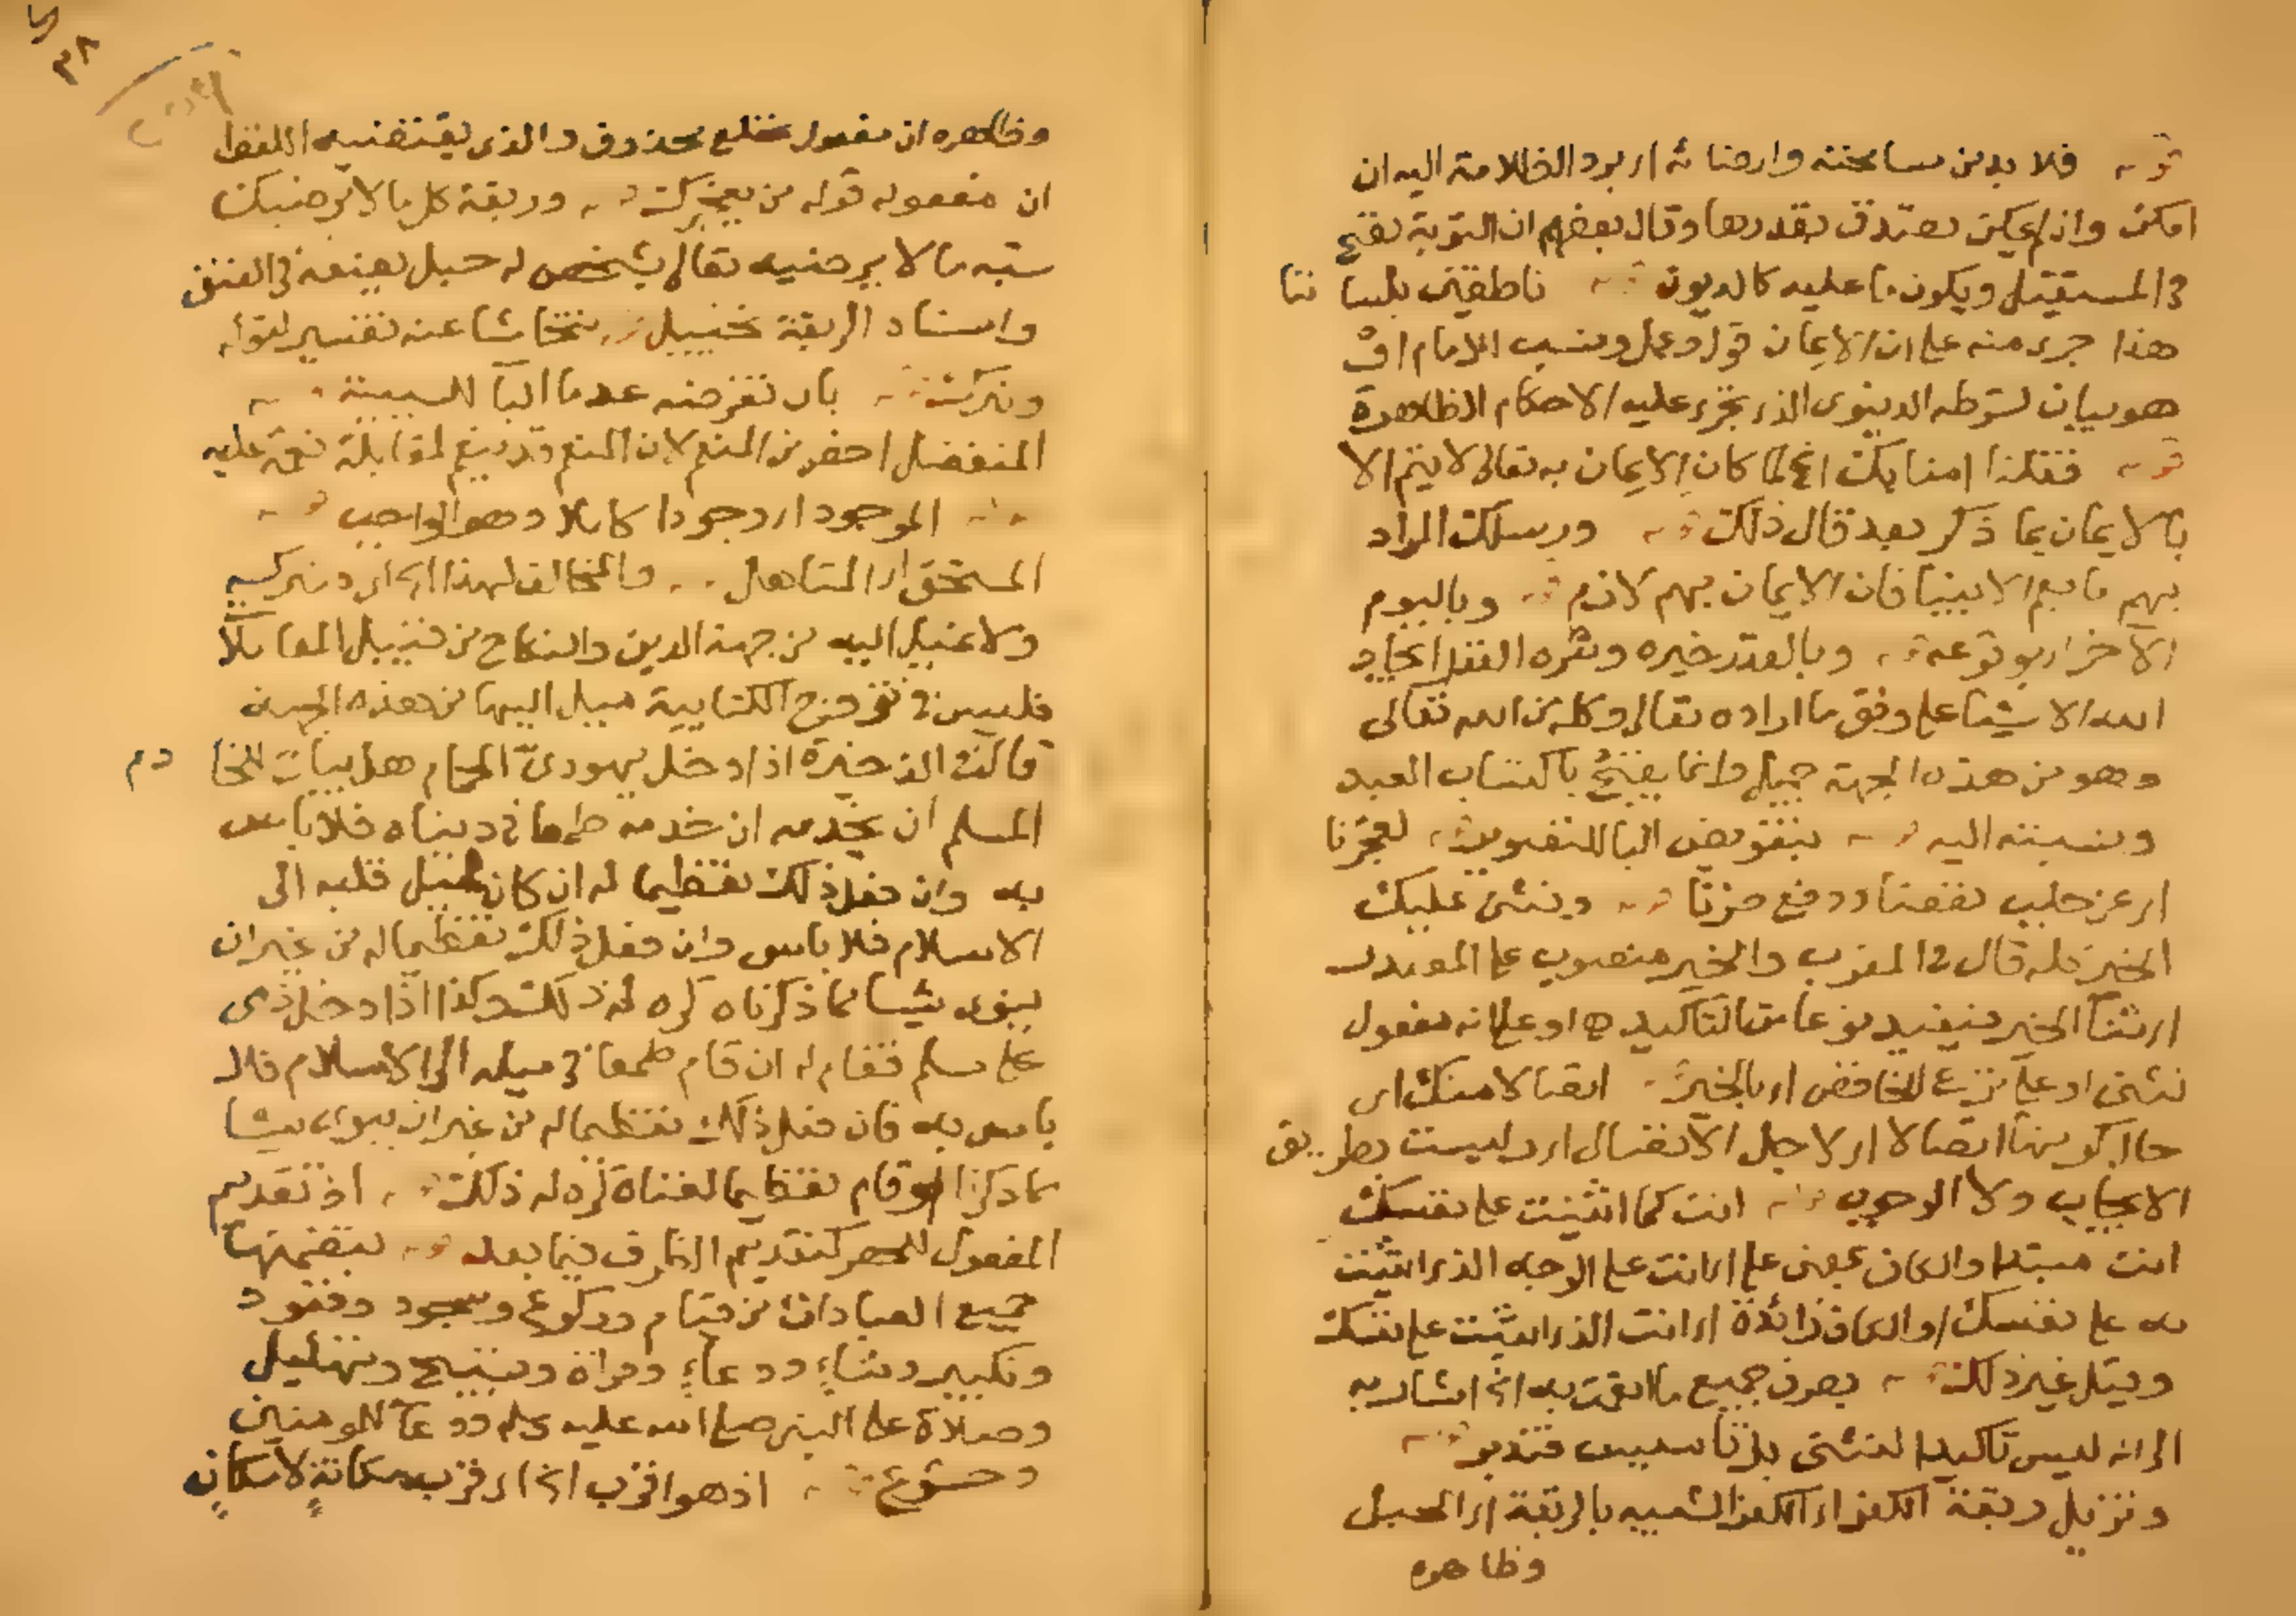 قوله فلا بد من مسامحته وارضائه او برد الظلامة اليه ان
امكن وان لم يمكن تصدق بقدرها وقال بعضهم ان التوبة تصح
في المستقبل ويكون ما عليه كالديون قوله ناطقين بلسا ننا
هذا جرى منه على ان الايمان قول وعمل ونسب للامام او
هو بيان لشرطه الدنيوى الذى تجرى عليه الاحكام الظاهرة
قوله فقلنا امنا بك الخ لما كان الايمان به تعالى لا يتم الا
بالايمان بما ذكر بعد قال ذلك قوله وبرسلك المراد
بهم ما يعم الانبيا فان الايمان بهم لازم قوله وباليوم
الآخر اى بوقوعه قوله وبالقدر خيره وشره القدر ايجاد
الله الاشيا على وفق ما اراده تعالى وكله من الله تعالى
وهو من هذه الجهة جميل وانما يقبح باكتساب العبد
ونسبته اليه قوله بتفويض البا للتصوير قوله لعجزنا
اى عن جلب نفعنا ودفع ضرنا قوله ونثنى عليك
الخير كله قال في المغرب والخير منصوب على المصدر
اى ثنآ الخير فيفيد نوعا من التاكيد اه او على انه مفعول
نثنى او على نزع الخافض اى بالخير قوله افضالا منك اى
حالة كونها افضالا اى لاجل الافضال اى وليست بطريق
الايجاب ولا الوجوب قوله انت كما اثنيت على نفسك
انت مبتدا والكاف بمعنى على اى انت على الوجه الذى اثنيت
به على نفسك او الكاف زائدة اى انت الذى اثنيت على نفسك
وقيل غير ذلك قوله بصرف جميع ما انعمت به الخ اشار به
الى انه ليس تاكيدا لنثنى بل تاسيس فتدبر قوله
ونزيل ربقة الكفر اى الكفر الشبيه بالربقة اى الحبل
وظاهره
وظاهره ان مفعول نخلع محذوف والذى يقتضيه اللفظ
ان مفعوله قوله من يفجرك قوله وربقة كل ما لا يرضيك
شبه ما لا يرضيه تعالى بشخص له حبل يضعه في العنق
واسناد الربقة تخييل قوله يتحاشا عنه تفسير لقوله
ونترك قوله بان نفرضه عدما البآ للسببية قوله
المتفضل اخص من المنعم لان المنعم قد ينعم لمقابلة نعمة عليه
قوله الموجود اى وجودا كاملا وهو الواجب قوله
المستحق اى المتاهل قوله والمخالف لهذا اى ونتركه
ولا نميل اليه من جهة الدين والنكاح من قبيل المعاملة
فليس في تزوج الكتابية ميل اليها من هذه الجهة
قال في الذخيرة اذا دخل يهودى الحمام هل يباح للخا دم
المسلم ان يخدمه ان خدمه طمعا في دنياه فلا باس
به وان فعل ذلك تعظيما له ان كان ليميل قلبه الى
الاسلام فلا باس وان فعل ذلك تعظيما له من غير ان
ينوى شيا مما ذكرناه كره له ذلك وكذا اذا دخل ذمى
على مسلم فقام له ان قام طمعا في ميله الى الاسلام فلا
باس به فان فعل ذلك تعظيما له من غير ان ينوى شيا
مما ذكرنا او قام تعظيما لغناه كره له ذلك قوله اذ تقديم
المفعول للحصر كتقديم الظرف فيما بعد قوله بتضمنها
جميع العبادات من قيام وركوع وسجود وقعود
وتكبير وثناء ودعاء وقراة وتسبيح وتهليل
وصلاة على النبى صلى الله عليه وسلم ودعآ للمومنين
وخشوع قوله اذ هو اقرب الخ اى قرب مكانةٍ لا مكانٍ